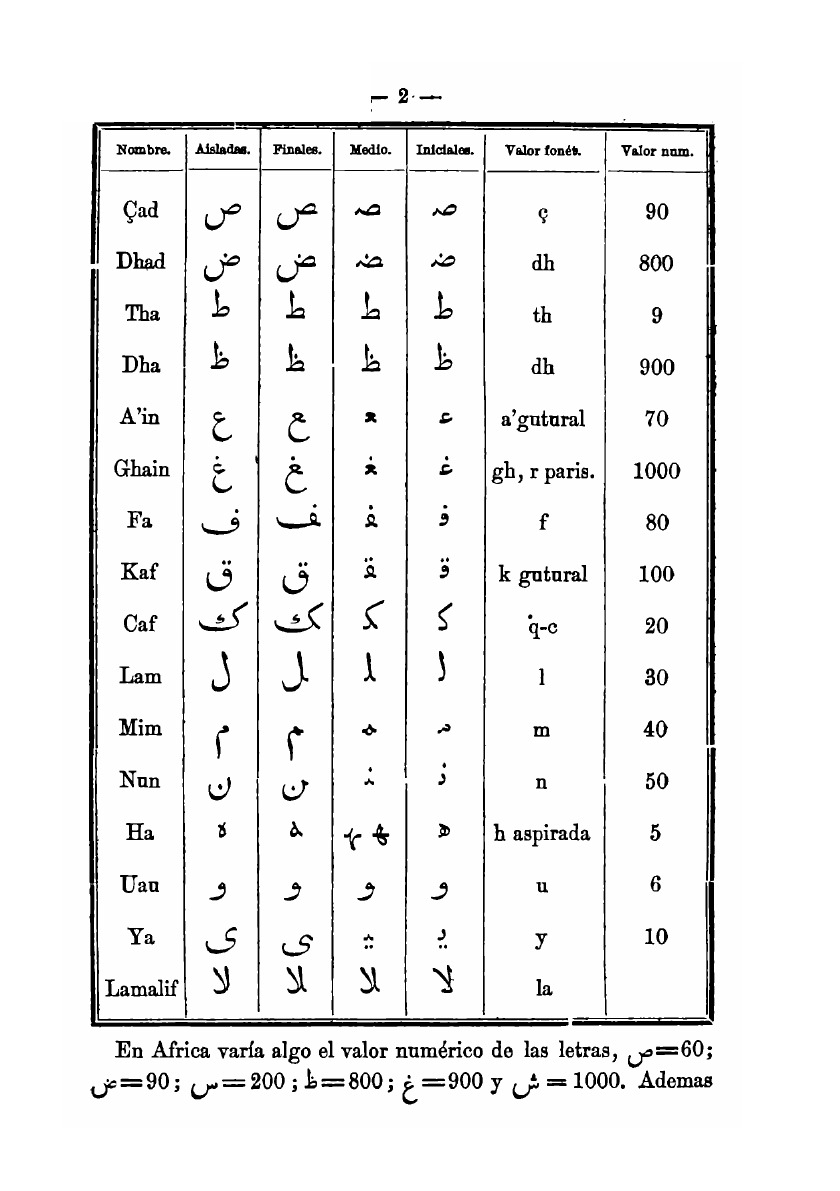 — 2 —
Nombre. Aisladas. Finales. Medio. Iniciales. Valor fonét. Valor num.
Çad ص ـص ـصـ صـ ç 90
Dhad ض ـض ـضـ ضـ dh 800
Tha ط ـط ـطـ طـ th 9
Dha ظ ـظ ـظـ ظـ dh 900
A’in ع ـع ـعـ عـ a’gutural 70
Ghain غ ـغ ـغـ غـ gh, r paris. 1000
Fa ف ـف ـفـ فـ f 80
Kaf ق ـق ـقـ قـ k gutural 100
Caf ك ـك ـكـ كـ q̇-c 20
Lam ل ـل ـلـ لـ l 30
Mim م ـم ـمـ مـ m 40
Nun ن ـن ـنـ نـ n 50
Ha ه ـه ـهـ ـهـ هـ h aspirada 5
Uau و و و و u 6
Ya ى ـى ـيـ يـ y 10
Lamalif لا ـلا ـلا لا la
En Africa varía algo el valor numérico de las letras, ص=60;
ض=90; س=200; ظ=800; غ=900 y ش=1000. Ademas